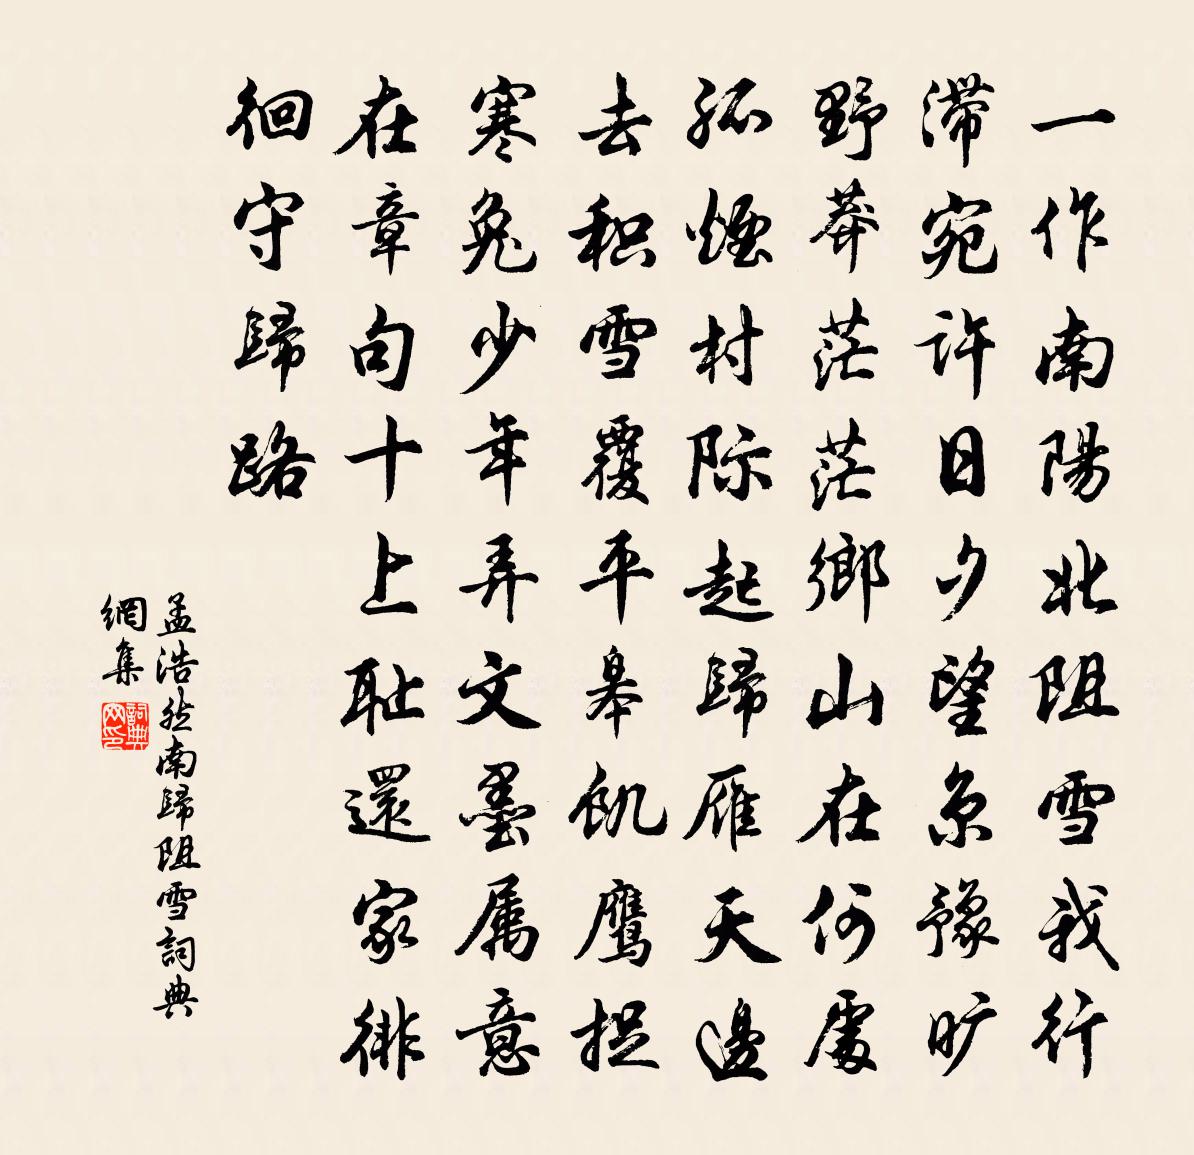 一作南陽北阻雪我行
滞宛許日夕望京豫旷
野莽茫茫鄉山在何處
孤煙村际起歸雁天邊
去积雪覆平皋飢鷹捉
寒兔少年弄文墨属意
在章句十上耻還家徘
徊守歸路
孟浩然南歸阻雪詞典
網集
詞典
网印